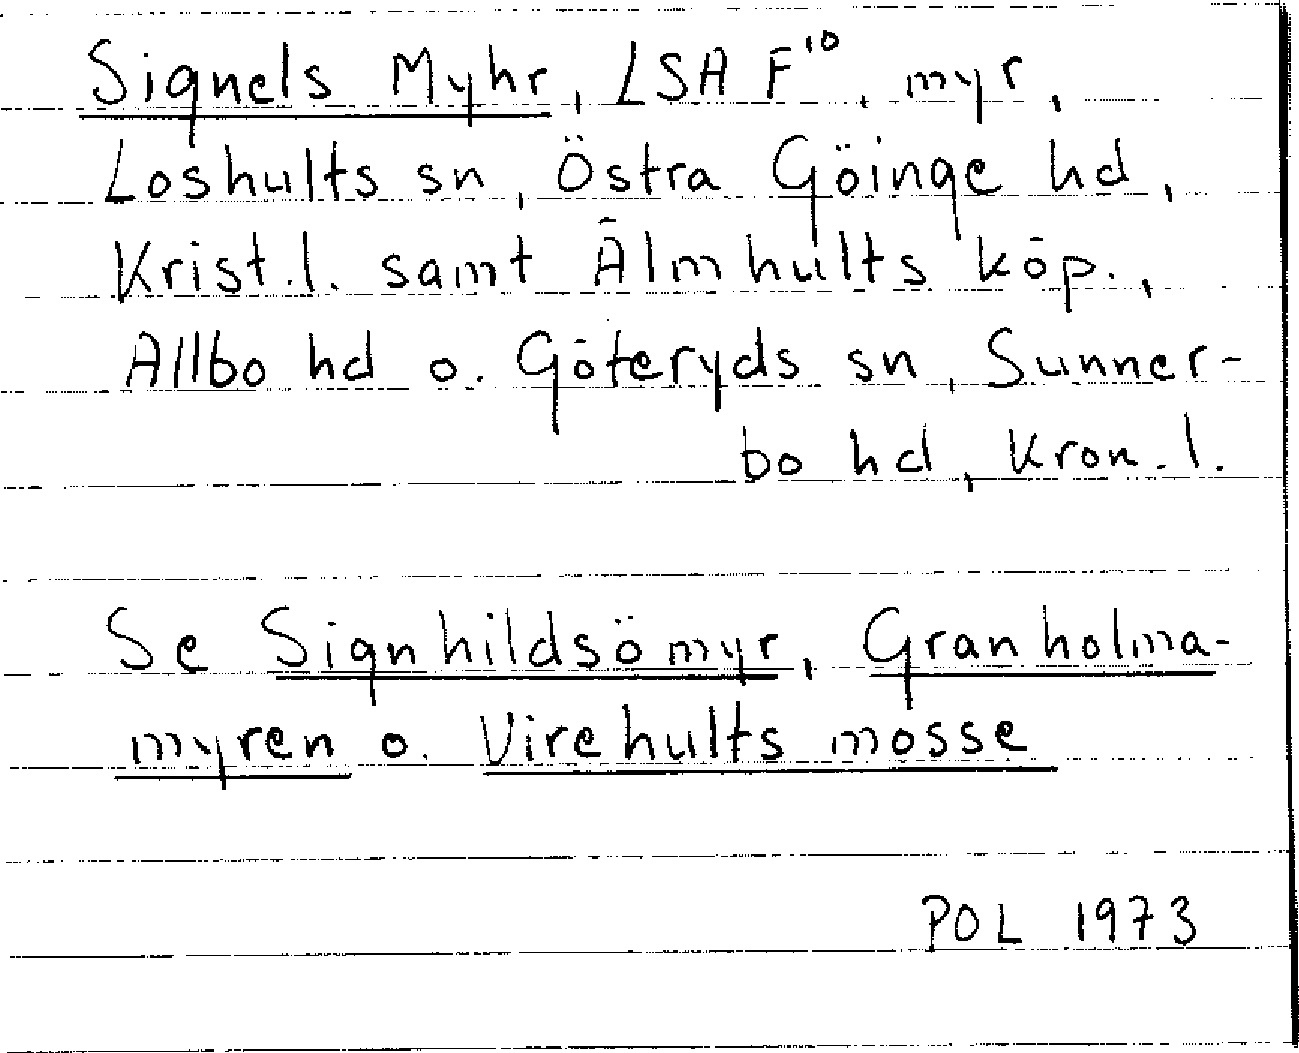 Signels Myhr, LSA F¹⁰, myr,
Loshults sn, Östra Göinge hd,
Krist.l. samt Älmhults köp.,
Allbo hd o. Göteryds sn, Sunner-
bo hd, Kron.l.
Se Signhildsömyr, Granholma-
myren o. Virehults mosse
POL 1973